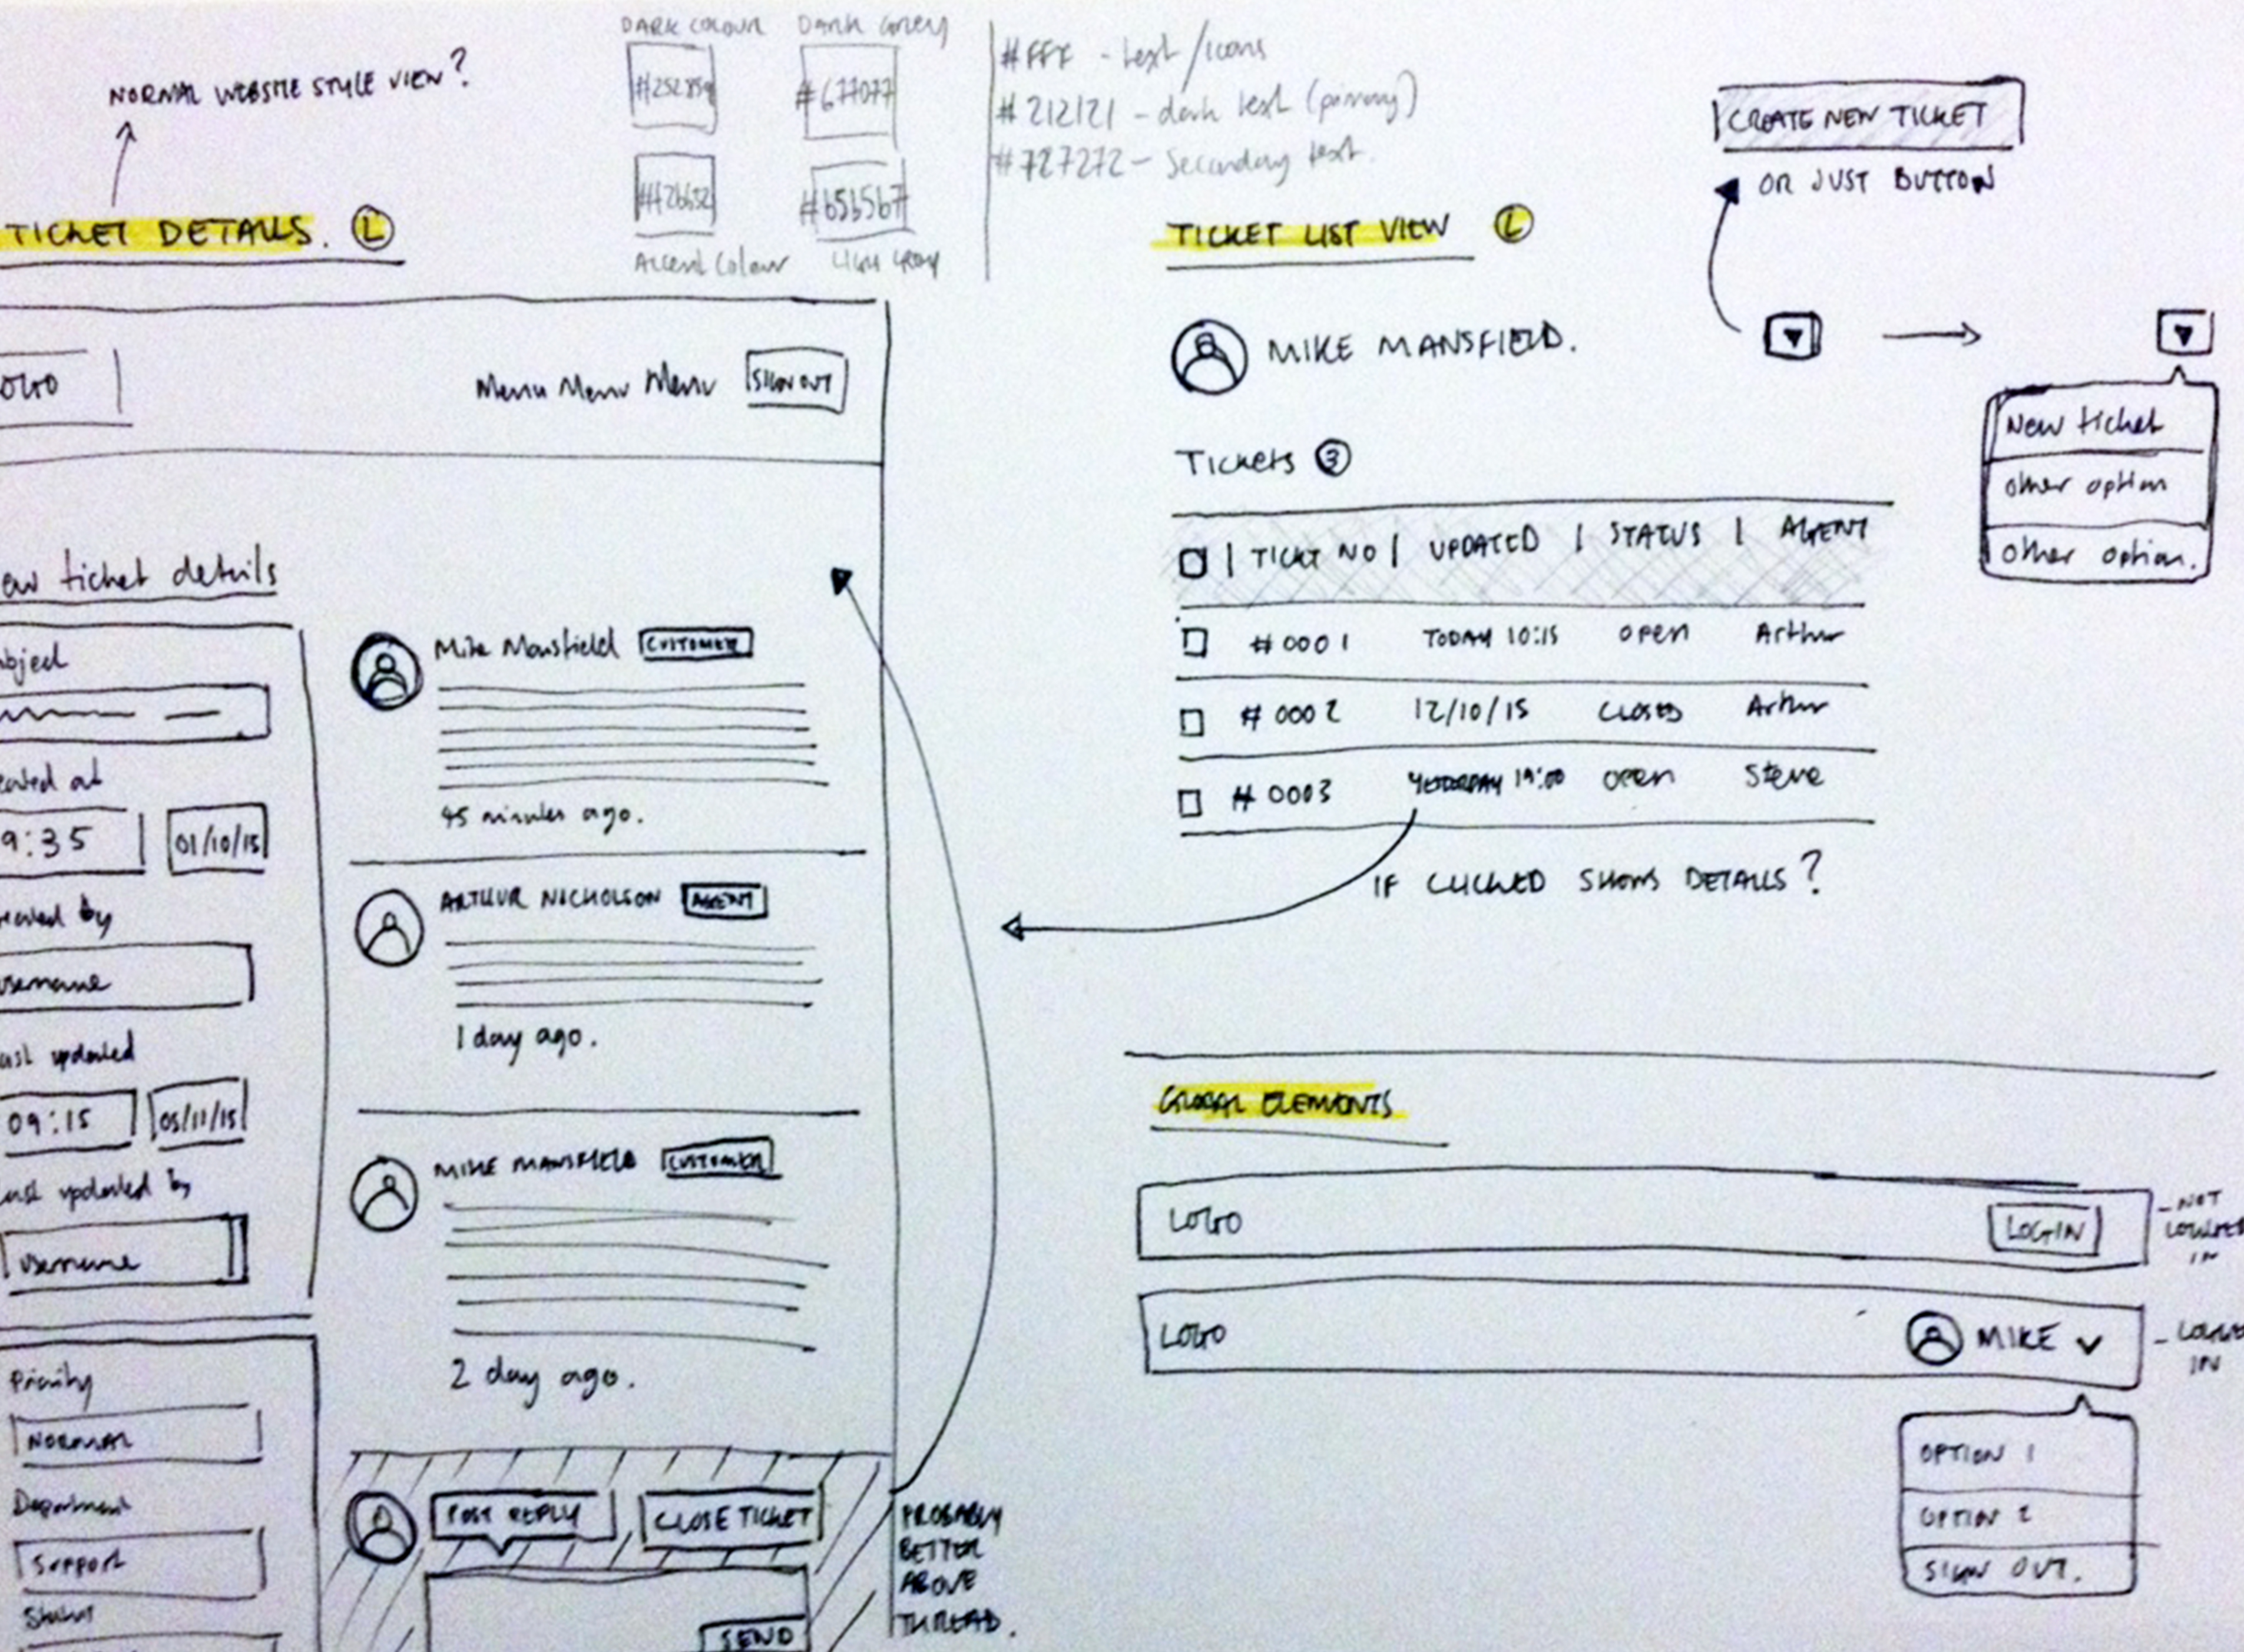 NORMAL WEBSITE STYLE VIEW?
TICKET DETAILS. L
DARK COLOUR
DARK GREY
#677077
#b5b5b7
Accent Colour
#FFF - text/icons
#212121 - dark text (primary)
#727272 - Secondary text.
Menu Menu Menu
SIGN OUT
ticket details
9:35
01/10/15
username
updated
09:15
05/11/15
updated by
username
Priority
NORMAL
Department
Support
Status
Mike Mansfield
CUSTOMER
45 minutes ago.
ARTHUR NICHOLSON
AGENT
1 day ago.
MIKE MANSFIELD
CUSTOMER
2 day ago.
POST REPLY
CLOSE TICKET
SEND
PROBABLY
BETTER
ABOVE
THREAD.
CREATE NEW TICKET
OR JUST BUTTON
TICKET LIST VIEW L
MIKE MANSFIELD.
Tickets 3
TICKT NO | UPDATED | STATUS | AGENT
#0001 TODAY 10:15 OPEN Arthur
#0002 12/10/15 CLOSED Arthur
#0003 YESTERDAY 19:00 OPEN Steve
IF CLICKED SHOWS DETAILS?
New ticket
other option
other option.
GLOBAL ELEMENTS
LOGO
LOGIN
- NOT
IN
LOGO
MIKE
IN
OPTION 1
OPTION 2
SIGN OUT.